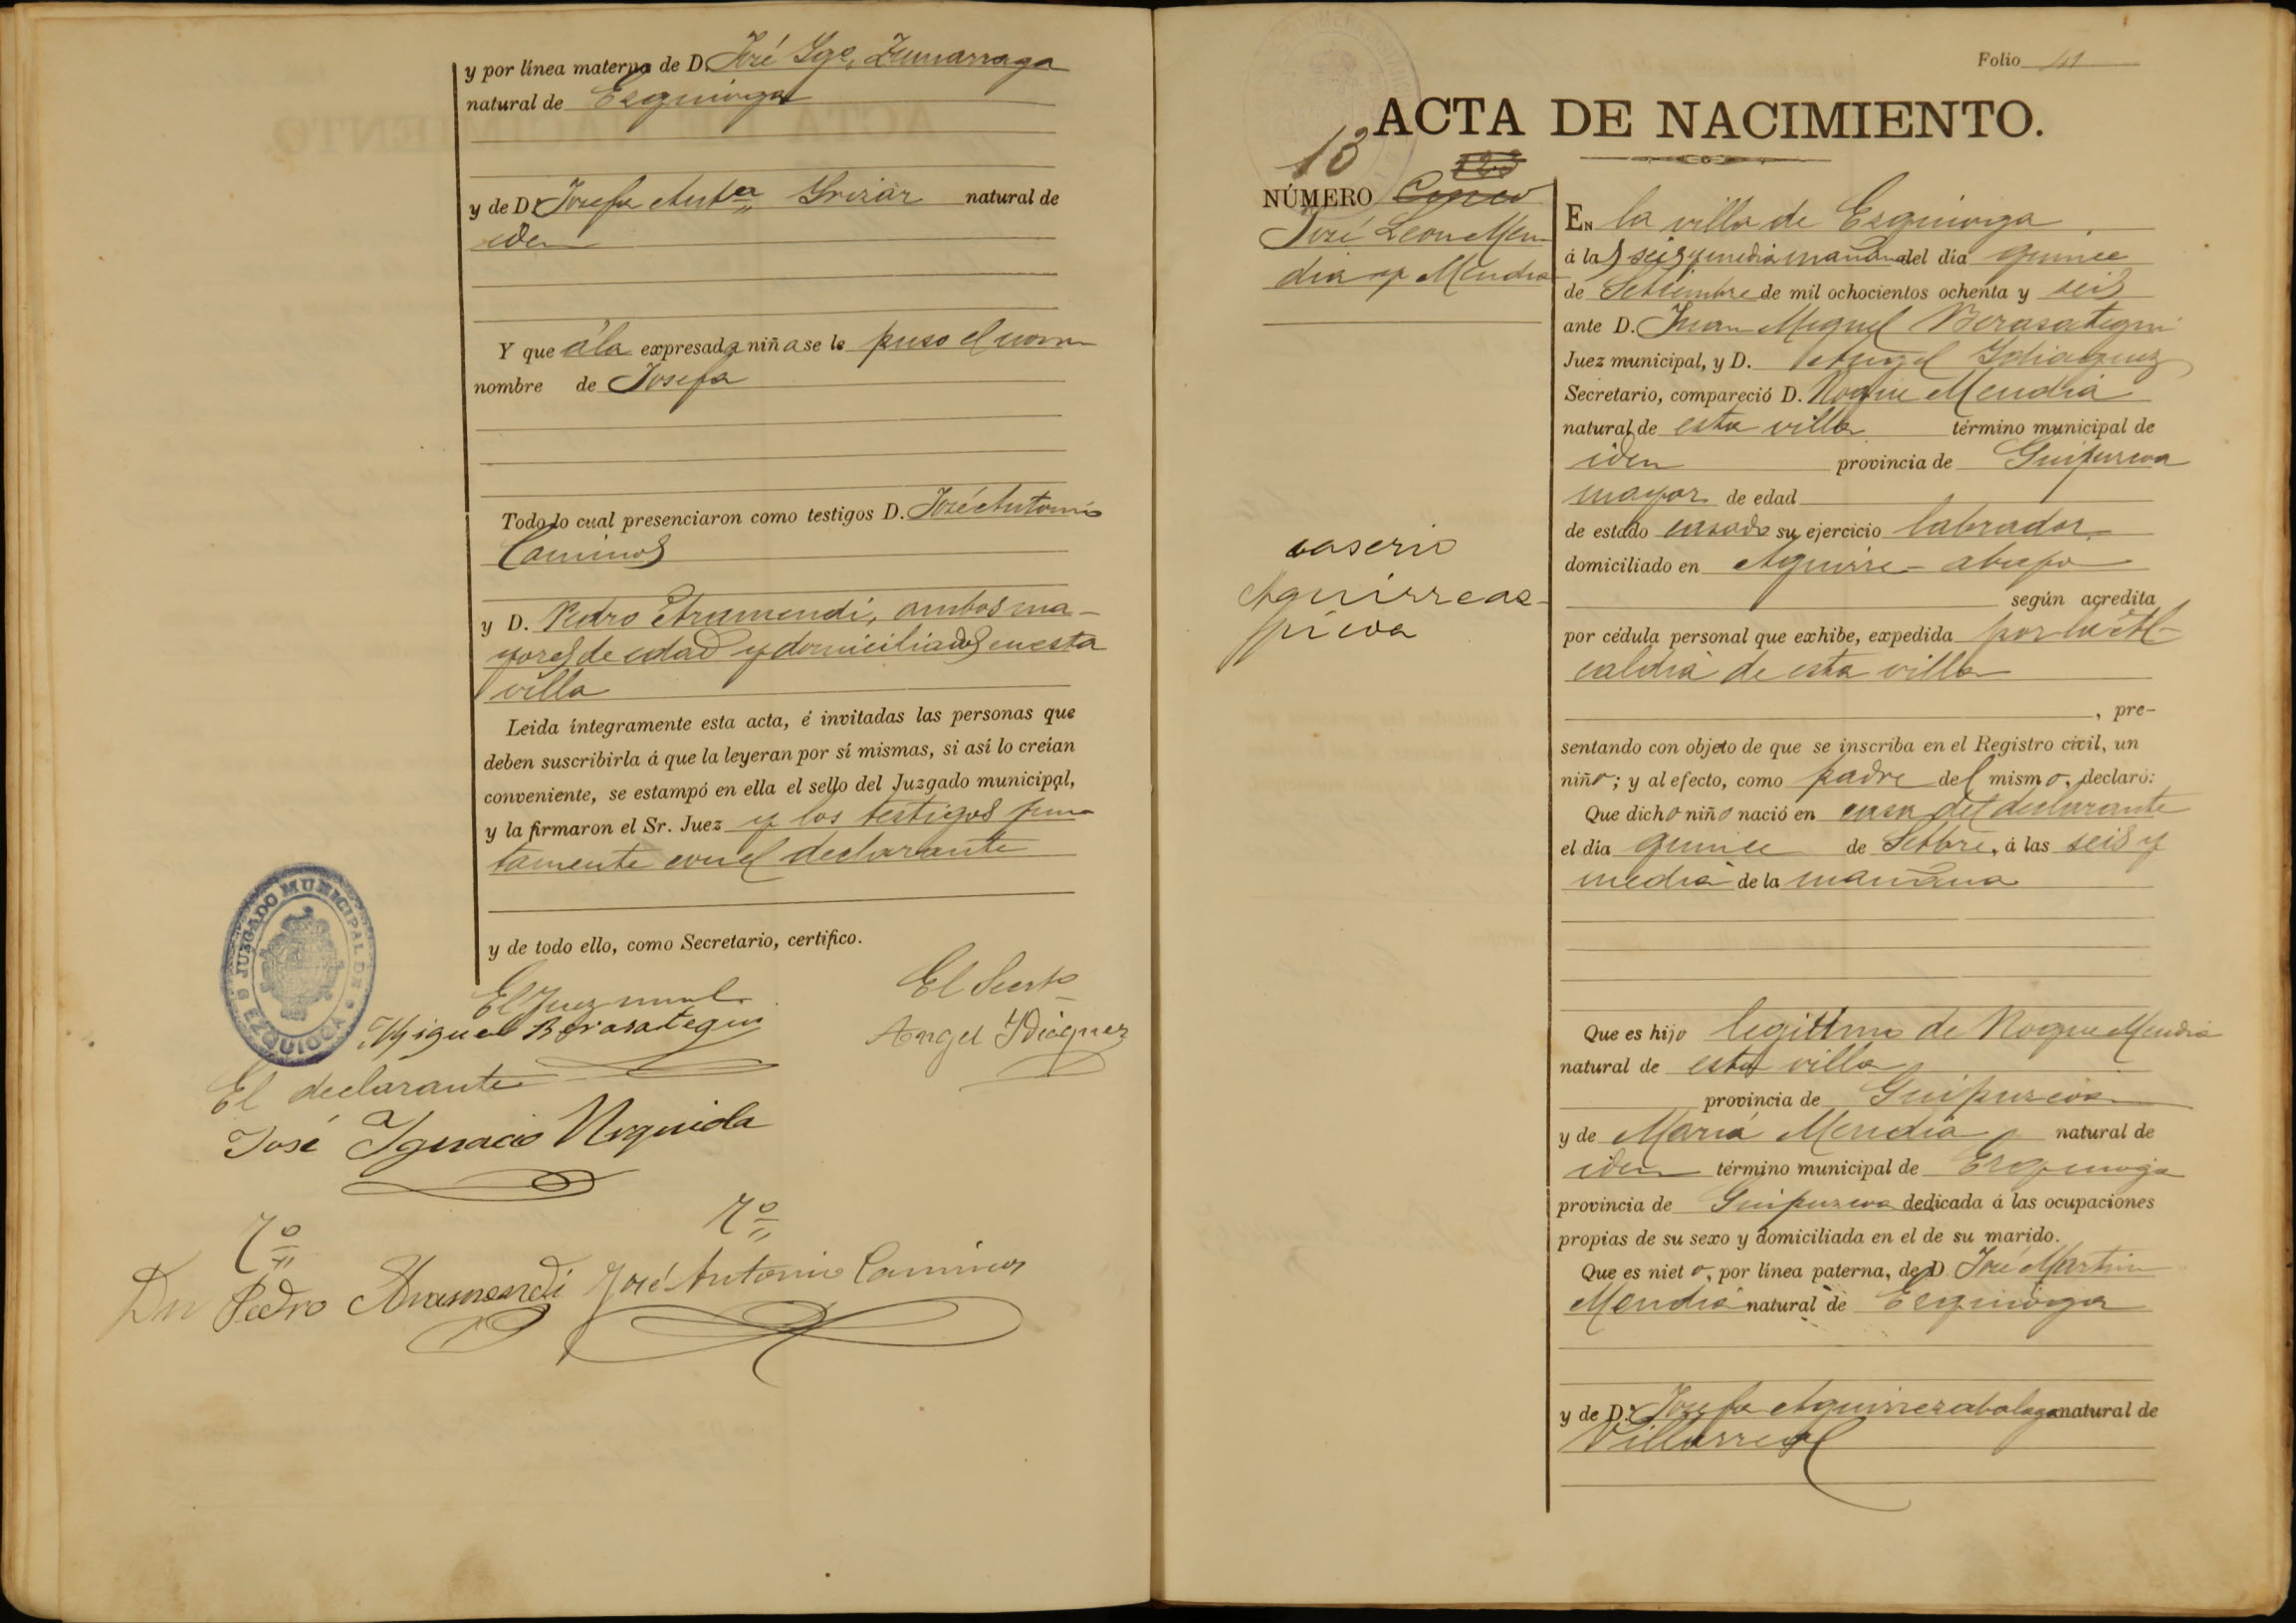 y por línea materna de D. José Ygo. Zumarraga
natural de Ezquioga
y de D.ª Josefa Anta Yrizar natural de
iden
Y que á la expresada niña se le puso el nom
nombre de Josefa
Todo lo cual presenciaron como testigos D. José Antonio
Caminos
y D. Pedro Aramendi, ambos ma-
yores de edad y domiciliados en esta
villa
Leida íntegramente esta acta, é invitadas las personas que
deben suscribirla á que la leyeran por sí mismas, si así lo creían
conveniente, se estampó en ella el sello del Juzgado municipal,
y la firmaron el Sr. Juez y los testigos junta
tamente con el declarante
y de todo ello, como Secretario, certifico.
JUZGADO MUNICIPAL DE
EZQUIOGA
El Juez munl.
El Secrto
Miguel Berasategui
Angel Ydiaquez
El declarante
José Ygnacio Urquiola
To
To
Dn Pedro Aramendi José Antonio Caminos
Folio 41
ACTA DE NACIMIENTO.
13
NÚMERO Cinco
José Leon Men
dia y Mendia
caserio
Aguirreaz-
picoa
En la villa de Ezquioga
á las seis y media mañana del día quince
de Setiembre de mil ochocientos ochenta y seis
ante D. Juan Miguel Berasategui
Juez municipal, y D. Angel Ydiaquez
Secretario, compareció D. Roque Mendia
natural de esta villa término municipal de
iden provincia de Guipuzcoa
mayor de edad
de estado casado su ejercicio labrador
domiciliado en Aguirre-
según acredita
por cédula personal que exhibe, expedida por la Al-
caldia de esta villa
, pre-
sentando con objeto de que se inscriba en el Registro civil, un
niño; y al efecto, como padre del mismo, declaró:
Que dicho niño nació en casa del declarante
el día quince de Setbre, á las seis y
media de la mañana
Que es hijo legitimo de Roque Mendia
natural de esta villa
provincia de Guipuzcoa
y de Maria Mendia natural de
iden término municipal de Ezquioga
provincia de Guipuzcoa dedicada á las ocupaciones
propias de su sexo y domiciliada en el de su marido.
Que es nieto, por línea paterna, de D. José Martin
Mendia natural de Ezquioga
y de D.ª Josefa Aguirrezabalaga natural de
Villarreal